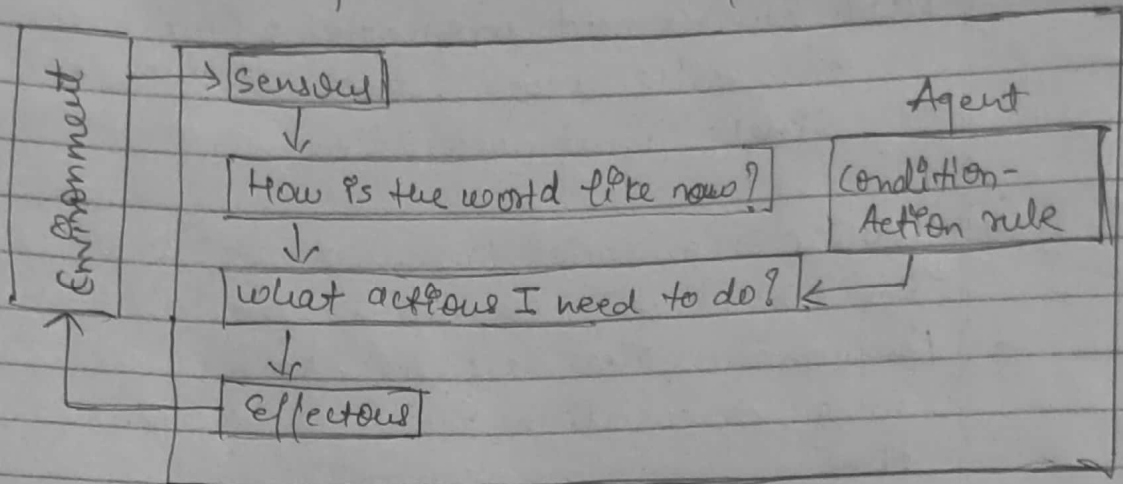 Environment
Sensors
Agent
How is the world like now?
Condition-
Action rule
What actions I need to do?
Effectors